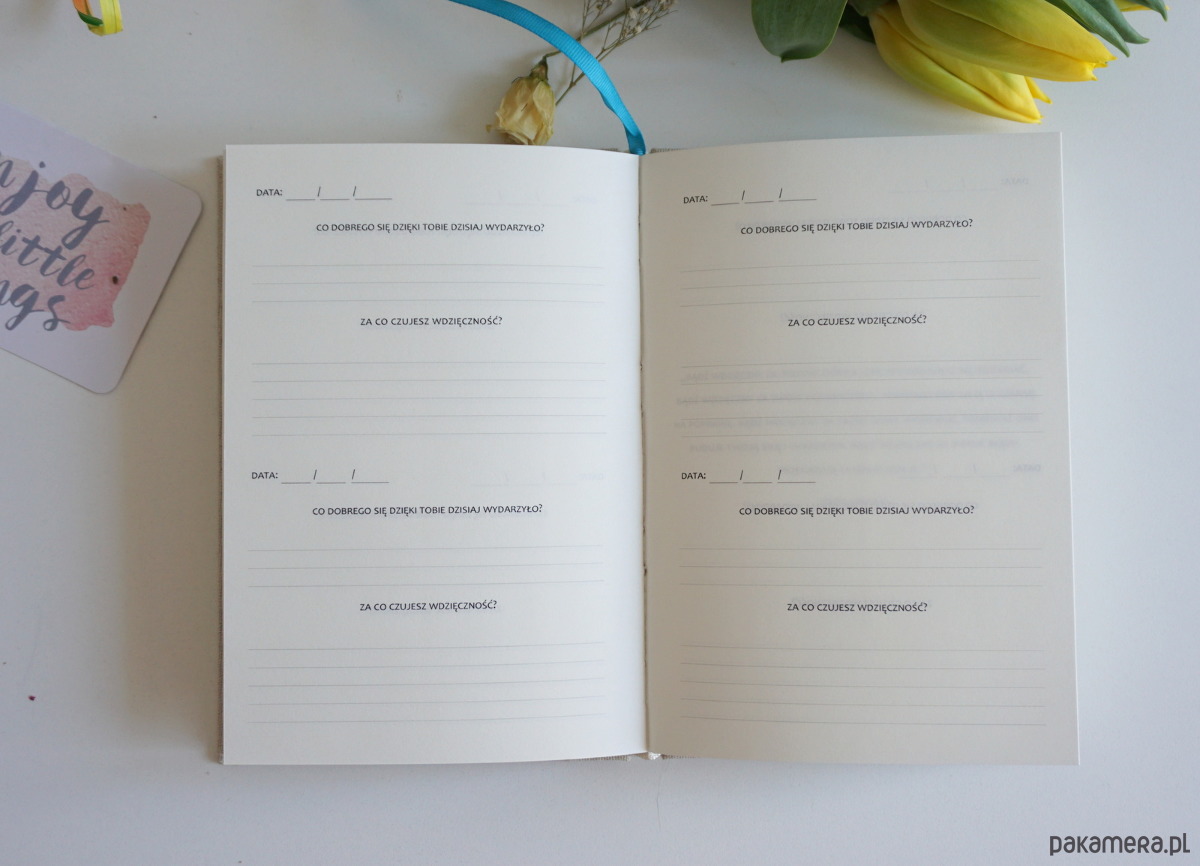 njoy
little
ngs
DATA: _____ /_____ /_______
CO DOBREGO SIĘ DZIĘKI TOBIE DZISIAJ WYDARZYŁO?
ZA CO CZUJESZ WDZIĘCZNOŚĆ?
DATA: _____ /_____ /_______
CO DOBREGO SIĘ DZIĘKI TOBIE DZISIAJ WYDARZYŁO?
ZA CO CZUJESZ WDZIĘCZNOŚĆ?
DATA: _____ /_____ /_______
CO DOBREGO SIĘ DZIĘKI TOBIE DZISIAJ WYDARZYŁO?
ZA CO CZUJESZ WDZIĘCZNOŚĆ?
DATA: _____ /_____ /_______
CO DOBREGO SIĘ DZIĘKI TOBIE DZISIAJ WYDARZYŁO?
ZA CO CZUJESZ WDZIĘCZNOŚĆ?
pakamera.pl